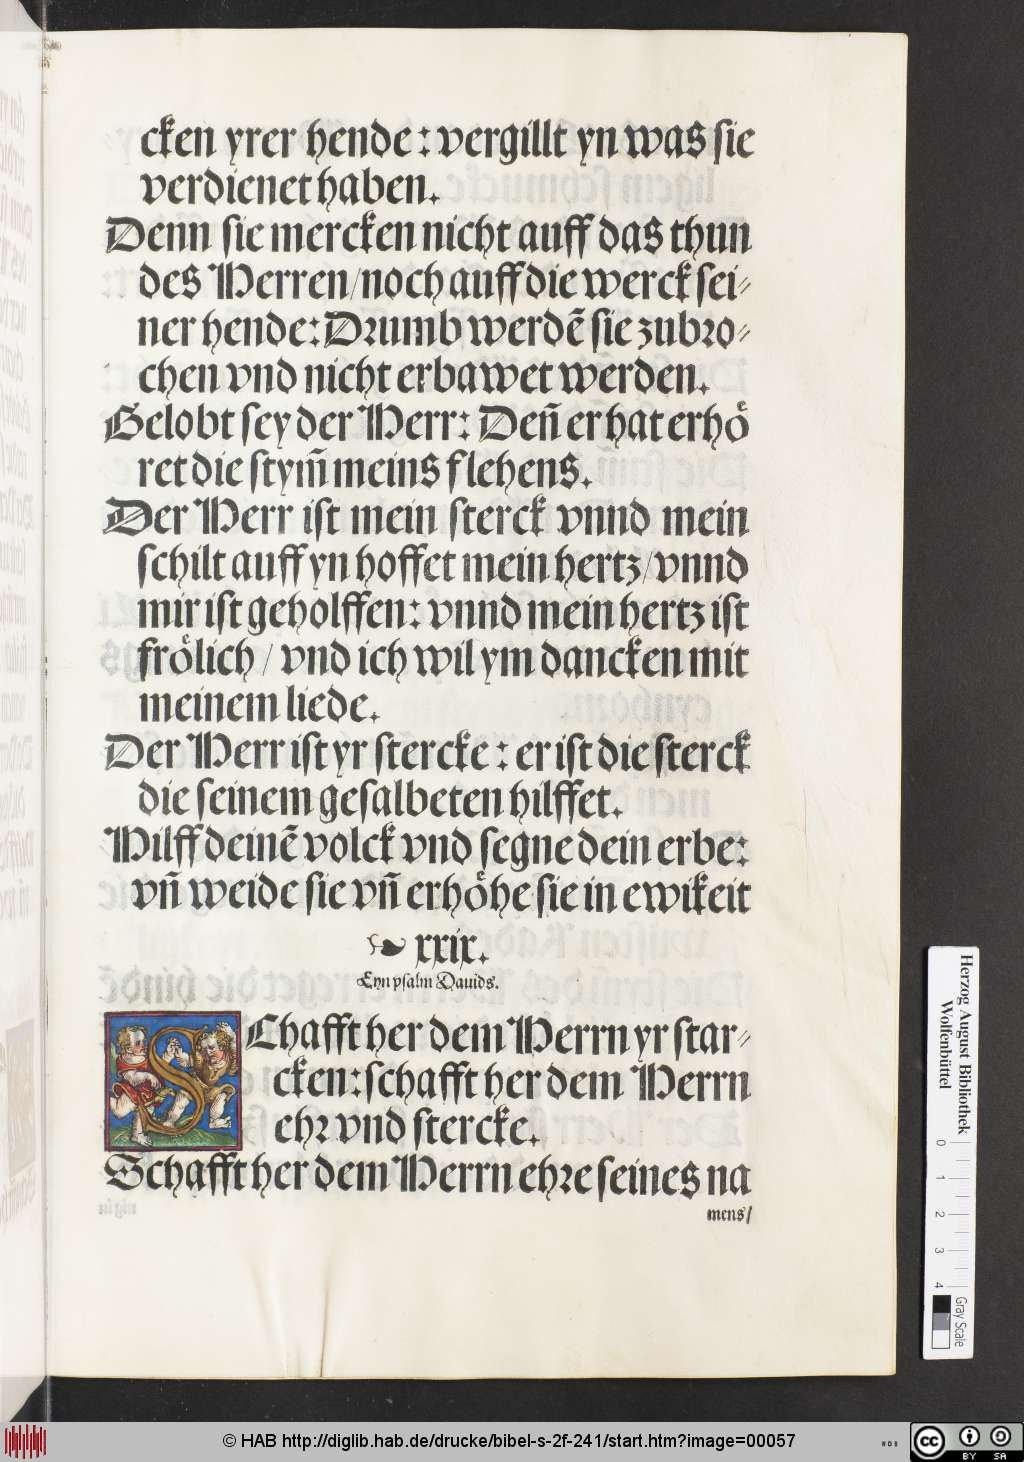 cken yrer hende: vergillt yn was sie
verdienet haben.
Denn sie mercken nicht auff das thun
des Herren/noch auff die werck sei⸗
ner hende: Drumb werdē sie zubro⸗
chen vnd nicht erbawet werden.
Gelobt sey der Herr: Deñ er hat erhoͤ
ret die stym̄ meins flehens.
Der Herr ist mein sterck vnnd mein
schilt auff yn hoffet mein hertz/vnnd
mir ist geholffen: vnnd mein hertz ist
froͤlich/ vnd ich wil ym dancken mit
meinem liede.
Der Herr ist yr stercke: er ist die sterck
die seinem gesalbeten hilffet.
Hilff deinē volck vnd segne dein erbe:
vñ weide sie vñ erhoͤhe sie in ewikeit
☙ xxix.
Eyn psalm Dauids.
SChafft her dem Herrn yr star⸗
cken: schafft her dem Herrn
ehr vnd stercke.
Schafft her dem Herrn ehre seines na
mens/
Herzog August Bibliothek
Wolfenbüttel
0 1 2 3 4
Gray Scale
© HAB http://diglib.hab.de/drucke/bibel-s-2f-241/start.htm?image=00057
WDB
cc BY SA